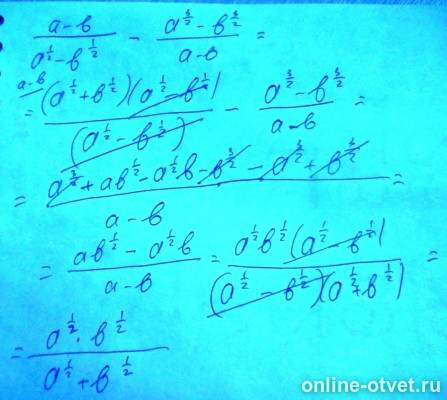 (a-b)/(a^{1/2}-b^{1/2}) - (a^{3/2}-b^{3/2})/(a-b) =
a-b
= (a^{1/2}+b^{1/2})(a^{1/2}-b^{1/2})/(a^{1/2}-b^{1/2}) - (a^{3/2}-b^{3/2})/(a-b) =
= (a^{3/2}+ab^{1/2}-a^{1/2}b-b^{3/2}-a^{3/2}+b^{3/2})/(a-b) =
= (ab^{1/2}-a^{1/2}b)/(a-b) = a^{1/2}b^{1/2}(a^{1/2}-b^{1/2})/(a^{1/2}-b^{1/2})(a^{1/2}+b^{1/2}) =
= (a^{1/2}·b^{1/2})/(a^{1/2}+b^{1/2})
online-otvet.ru